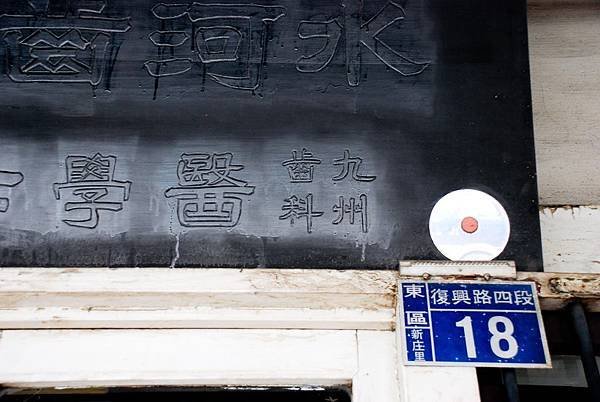 水河齒
九州
齒科
醫學
東區
新庄里
復興路四段
18